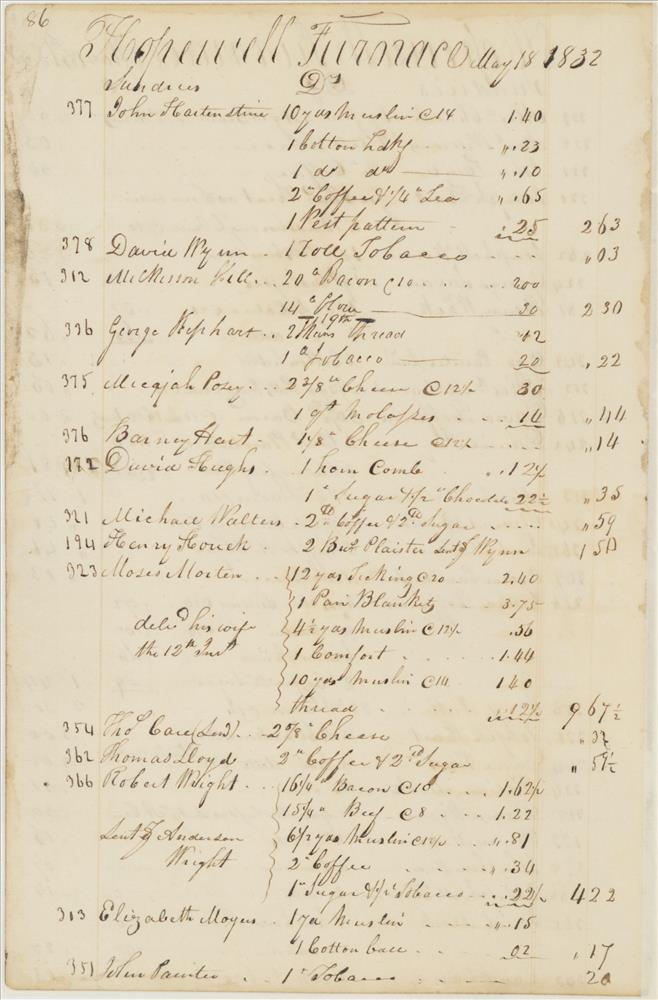 86
Hopewell Furnace May 18 1832
Sundries Drs
377 John Hartenstine 10 yds Muslin @14 1.40
1 Cotton Hdkf " .23
1 do do " .10
2 " Coffee & 1/4 " Tea " .65
1 Vest pattern .25 2 63
378 David Wynn 1 Roll Tobacco " 03
312 Wilkesson Hill 20 " Bacon @10 200
14 " flour 30 2 30
19th
336 George Kephart 2 Skins thread "12
1 " Tobacco 20 " 22
375 Micajah Posey 2 3/8 " Cheese @12½ 30
1 qt Molasses 14 " 44
376 Barney Hart 1 1/8 " Cheese @12½ " 14
172 David Hughs 1 horn Comb " .12½
1 " Sugar & ½ " Chocolate 22½ " 35
321 Michael Walters 2 " Coffee & 2 " Sugar " 59
194 Henry Houck 2 Bus Plaister Sent J Wynn 1 50
323 Moses Morten 12 yds Ticking @20 2.40
1 Pair Blankets 3.75
delivd his wife 4½ yds Muslin @12½ .56
the 12th Inst 1 Comfort 1.44
10 yds Muslin @14 1 40
thread " .12½ 9 67½
354 Thos Care (Lewd) 2 5/8 " Cheese " 32
362 Thomas Lloyd 2 " Coffee & 2 " Sugar " 51½
366 Robert Wright 16¼ " Bacon @10 1.62½
15¼ " Beef @8 1.22
Sent J Anderson 6½ yds Muslin @12½ " .81
Wright 2 " Coffee " .34
1 " Sugar & ½ " Tobacco .22½ 4 22
313 Elizabeth Moyer 1 yd Muslin " .15
1 Cotton ball 02 " 17
351 John Painter 1 " Tobacco 20